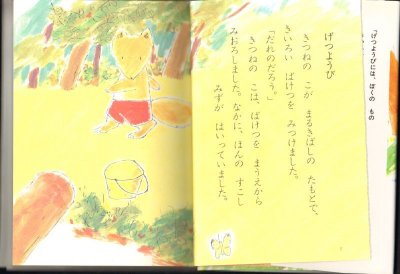 げつようび
きつねの こが まるきばしの たもとで、
きいろい ばけつを みつけました。
「だれのだろう。」
きつねの こは、ばけつを まうえから
みおろしました。なかに、ほんの すこし
みずが はいっていました。
「げつようびには、ぼくの もの